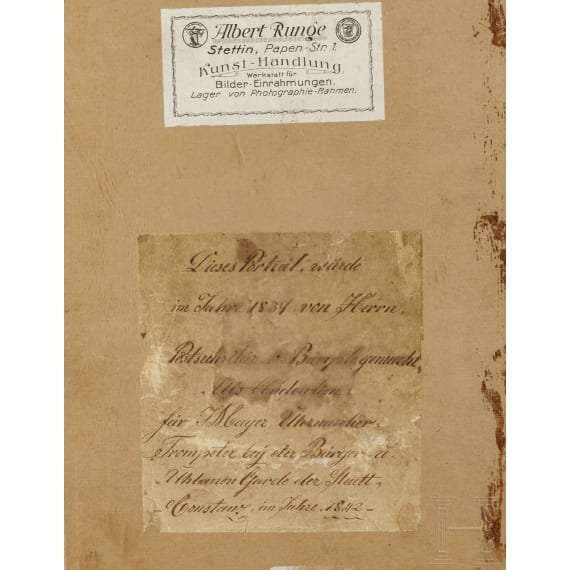 Albert Runge
Stettin, Papen-Str. 1.
Kunst-Handlung,
Werkstatt für
Bilder-Einrahmungen.
Lager von Photographie-Rahmen.
Dieses Portrait, würde
im Jahre 1834 von Herrn.
Postsekretür v. gemacht,
Als
für J Mayer Uhrmacher.
Trompeter beÿ der Bürger u.
Uhlanen Garde der Stadt,
Constanz, im Jahre. 1842 -